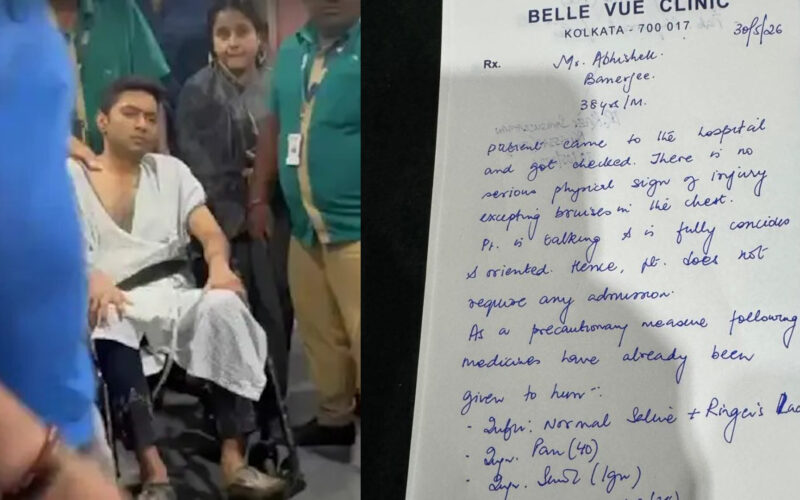 BELLE VUE CLINIC
KOLKATA - 700 017
30/5/26
Rx.
Mr. Abhishek
Banerjee.
38yrs/M.
patient came to the hospital
and got checked. There is no
serious physical sign of injury
excepting bruises in the chest.
Pt. is talking & is fully concides
& oriented. Hence, pt. does not
require any admission.
As a precautionary measure following
medicines have already been
given to him:-
- Infu: Normal Saline + Ringer's Lac
- Inj. Pan (40)
- Inj. (1gm)